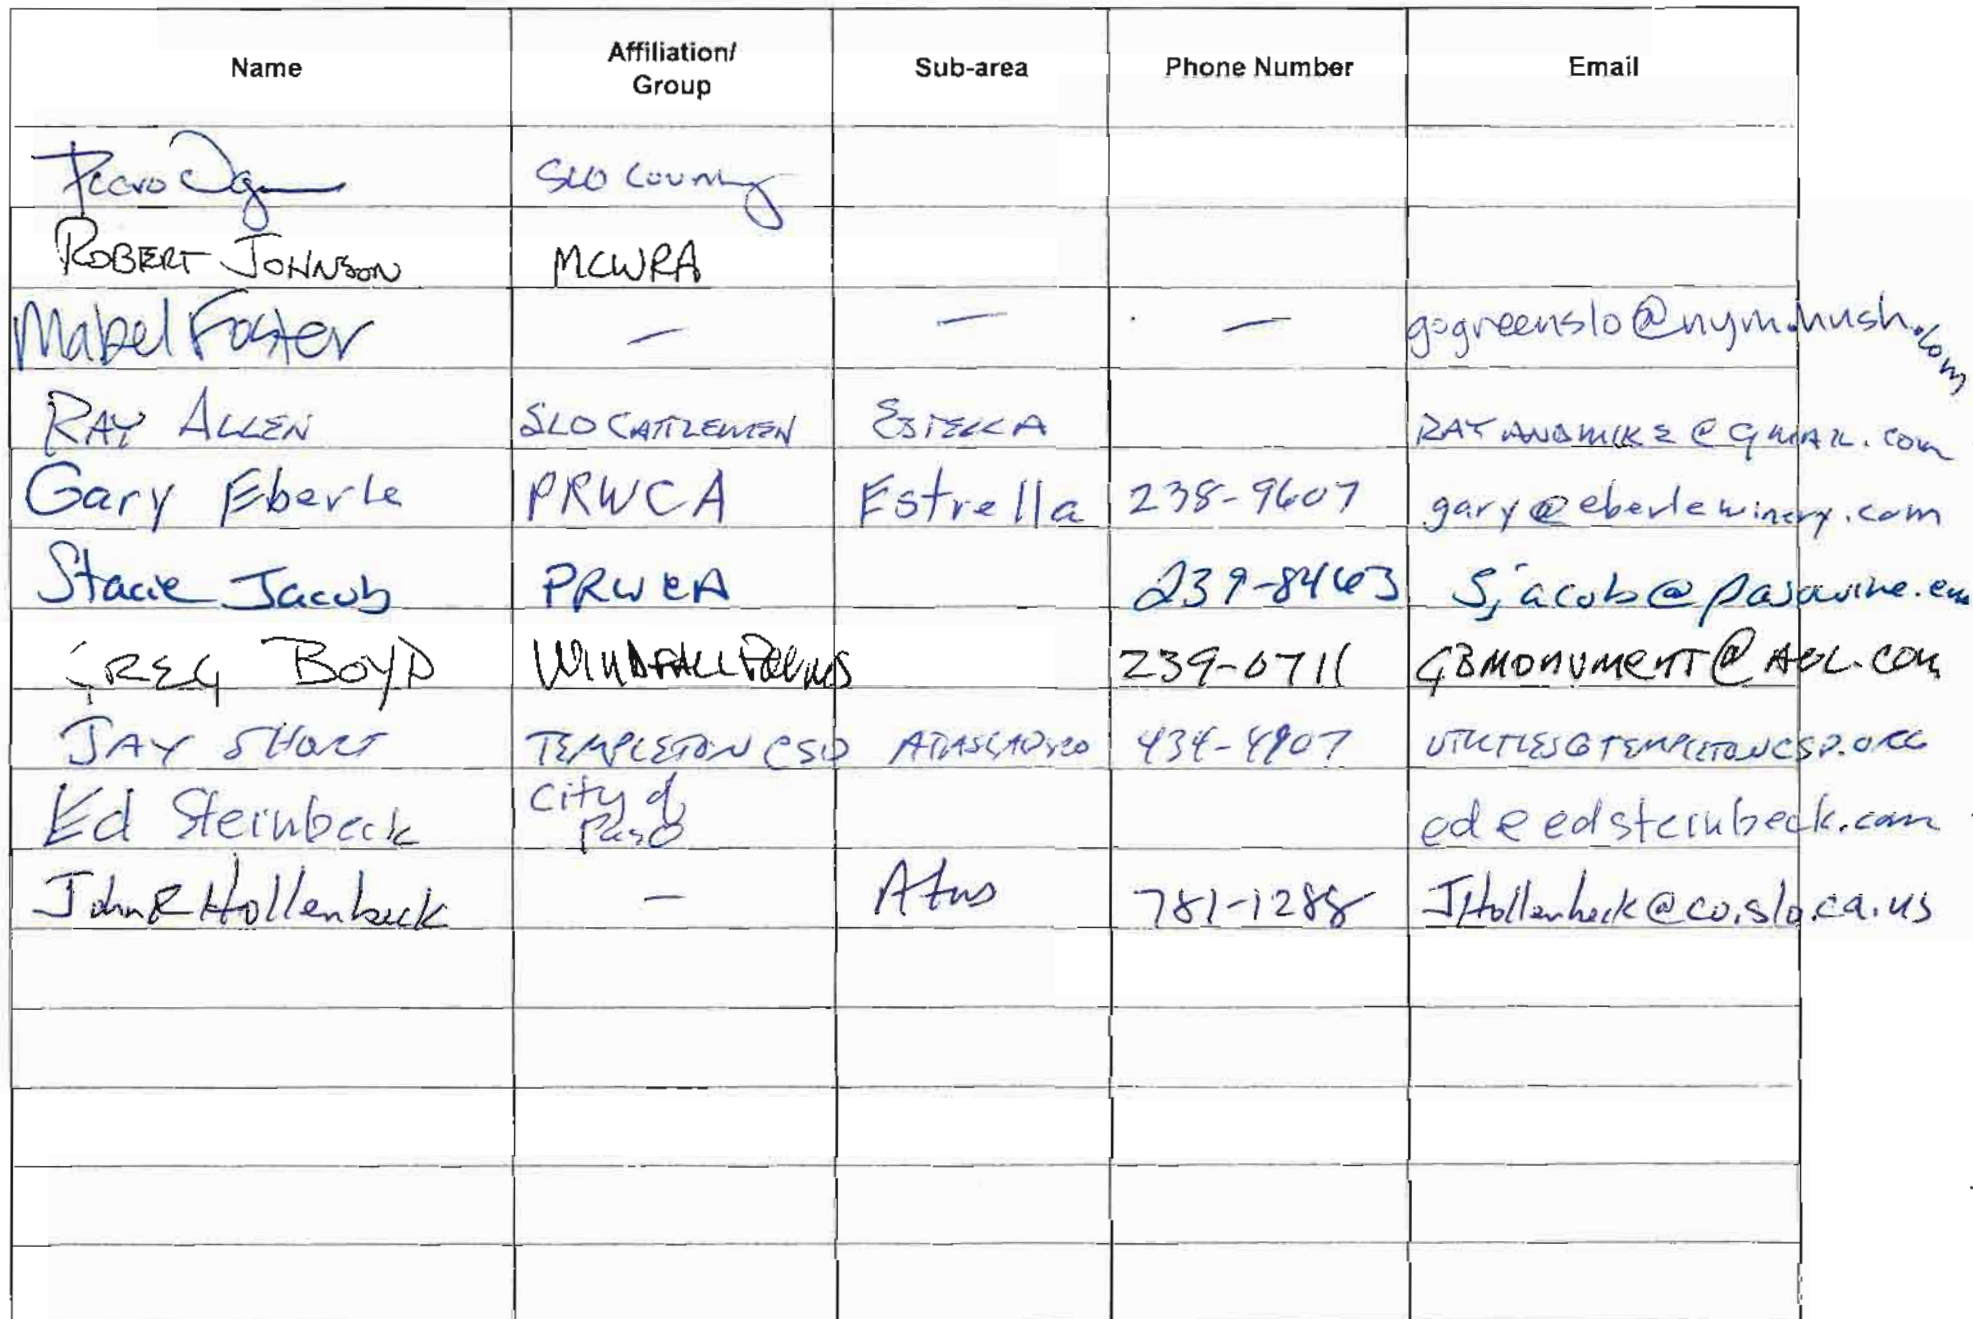 Name Affiliation/ Group Sub-area Phone Number Email
SLO County
ROBERT JOHNSON MCWRA
Mabel Foster — — — gogreenslo@nym.hush.com
RAY ALLEN SLO CATTLEMEN ESTELLA RAYANDMIKE@GMAIL.com
Gary Eberle PRWCA Estrella 238-9607 gary@eberlewinery.com
Stacie Jacob PRWCA 239-8463 sjacob@pasowine.com
GREG BOYD WINDFALL FARMS 239-0711 GBMONUMENT@AOL.COM
JAY SHORT TEMPLETON CSD ATASCADERO 434-4907 UTILITIES@TEMPLETONCSD.ORG
Ed Steinbeck City of Paso ed@edsteinbeck.com
John R Hollenbeck — Atas 781-1288 JHollenbeck@co.slo.ca.us